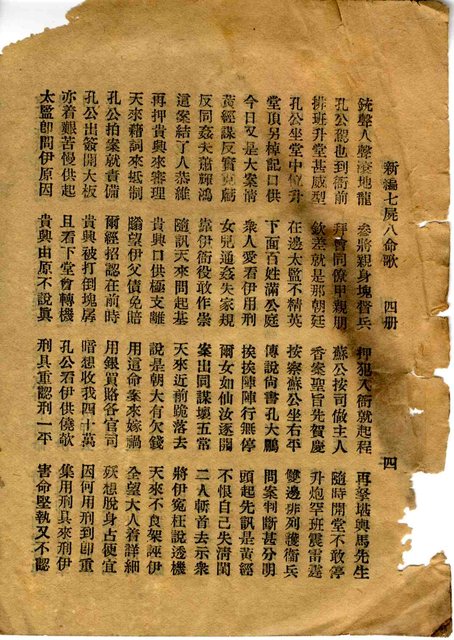 新編七屍八命歌 四册 四
銃聲人聲滾地龍 叅將親身塊督兵 押犯入衙就起程 再拏堪輿馬先生
孔公駕也到衙前 拜會同僚甲親朋 蘇公按司做主人 隨時開堂不敢停
排班升堂甚威型 欽差就是那朝廷 香案聖旨先賀慶 升炮罕班震雷霆
孔公坐堂中位升 在邊太監不精英 按察蘇公坐右平 雙邊排列獲衛兵
堂頂另棹記口供 下面百姓滿公庭 傳說尙書孔大鵬 問案判斷甚分明
今日又是大案 衆人愛看伊用刑 挨挨陣陣行無停 頭起先訊是黃經
黃經謀反實克虧 女兒通姦失家規 爾女如仙汝逐開 不恨自己失淸閨
反同姦夫蕭輝鴻 靠伊衙役敢作崇 案出同謀壞五常 二人斬首去示衆
這案結了人恭維 隨訊天來問起基 天來近前跪落去 將伊寃枉說透機
再押貴興來審理 貴興口供極支離 說是朝大有欠錢 天來不良架誣伊
天來藉詞來抵制 騙望伊父債免賠 用這命案來嫁禍 全望大人着詳細
孔公拍案就責備 爾經招認在前時 用銀買賂各官司 想脫身占便宜
孔公出簽開大板 貴興被打倒塊孱 暗想收我四十萬 因何用刑到卽重
亦着艱苦慢供起 且看下堂會轉機 孔公看伊供僥欹 集用刑具來刑伊
太監卽間伊原因 貴興由原不說眞 刑具重認刑一平 害命堅執又不認